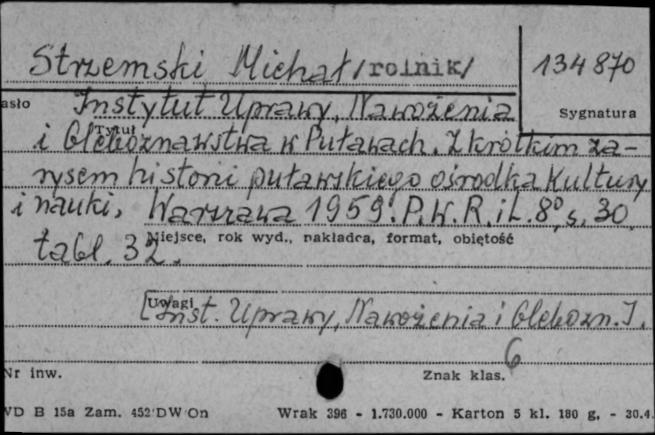 Strzemski Michał /rolnik/
134870
asło
Instytut Uprawy, Nawożenia
Sygnatura
Tytuł
i Gleboznawstwa w Puławach. Z krótkim za-
rysem historii puławskiego ośrodka kultury
i nauki, Warszawa 1959. P.W.R.i L. 8°, s. 30,
Miejsce, rok wyd., nakładca, format, objętość
tabl. 32.
Uwagi
[Inst. Uprawy, Nawożenia i Glebozn.].
6
Nr inw.
Znak klas.
WD B 15a Zam. 452 DW On Wrak 396 - 1.730.000 - Karton 5 kl. 180 g. - 30.4.